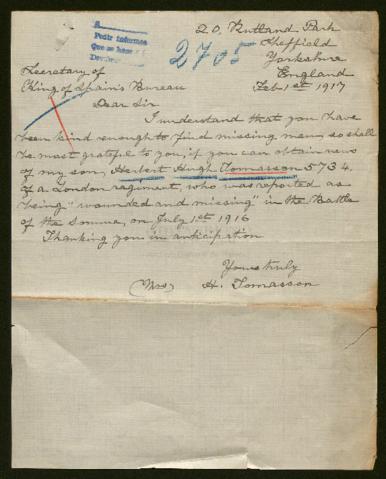 20, Rutland Park
Sheffield
Yorkshire
England
Feb 1st 1917
A
Pedir informes
Que se hace
2705
Secretary of
King of Spain's Bureau
Dear Sir
I understand that you have
been kind enough to find missing men, so shall
be most grateful to you, if you can obtain news
of my son, Herbert Hugh Tomasson 5734.
of a London regiment, who was reported as
being "wounded and missing" in the Battle
of the Somme, on July 1st 1916
Thanking you in anticipation
Yours truly
(Mrs) H. Tomasson